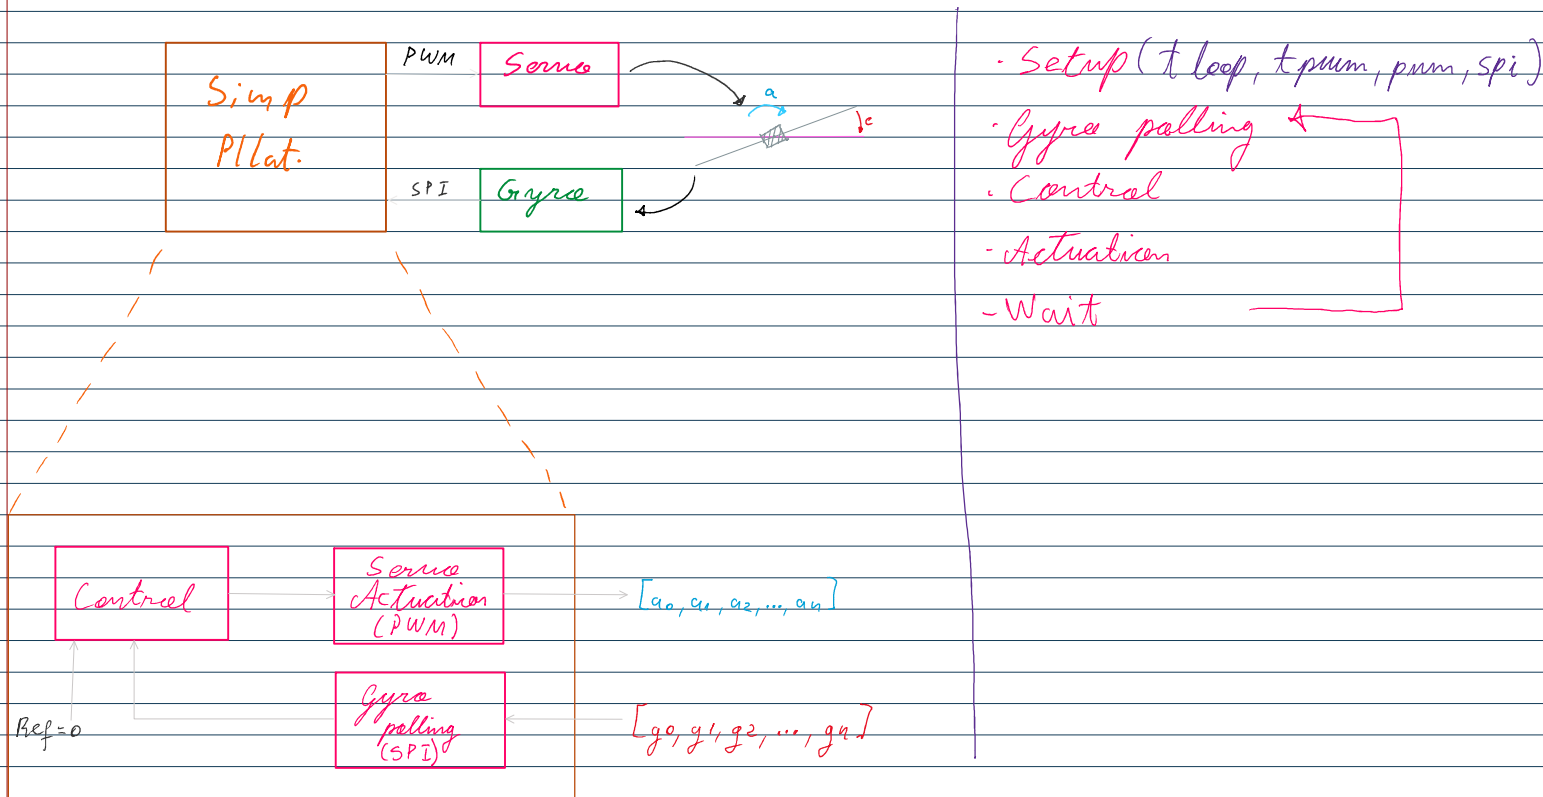 PWM
Servo
Simp
Pilat.
a
e
SPI
Gyro
Control
Servo
Actuation
(PWM)
[a0, a1, a2, ..., an]
Ref=0
Gyro
polling
(SPI)
[g0, g1, g2, ..., gn]
· Setup (t loop, t pwm, pwm, spi)
· Gyro polling
· Control
- Actuation
- Wait